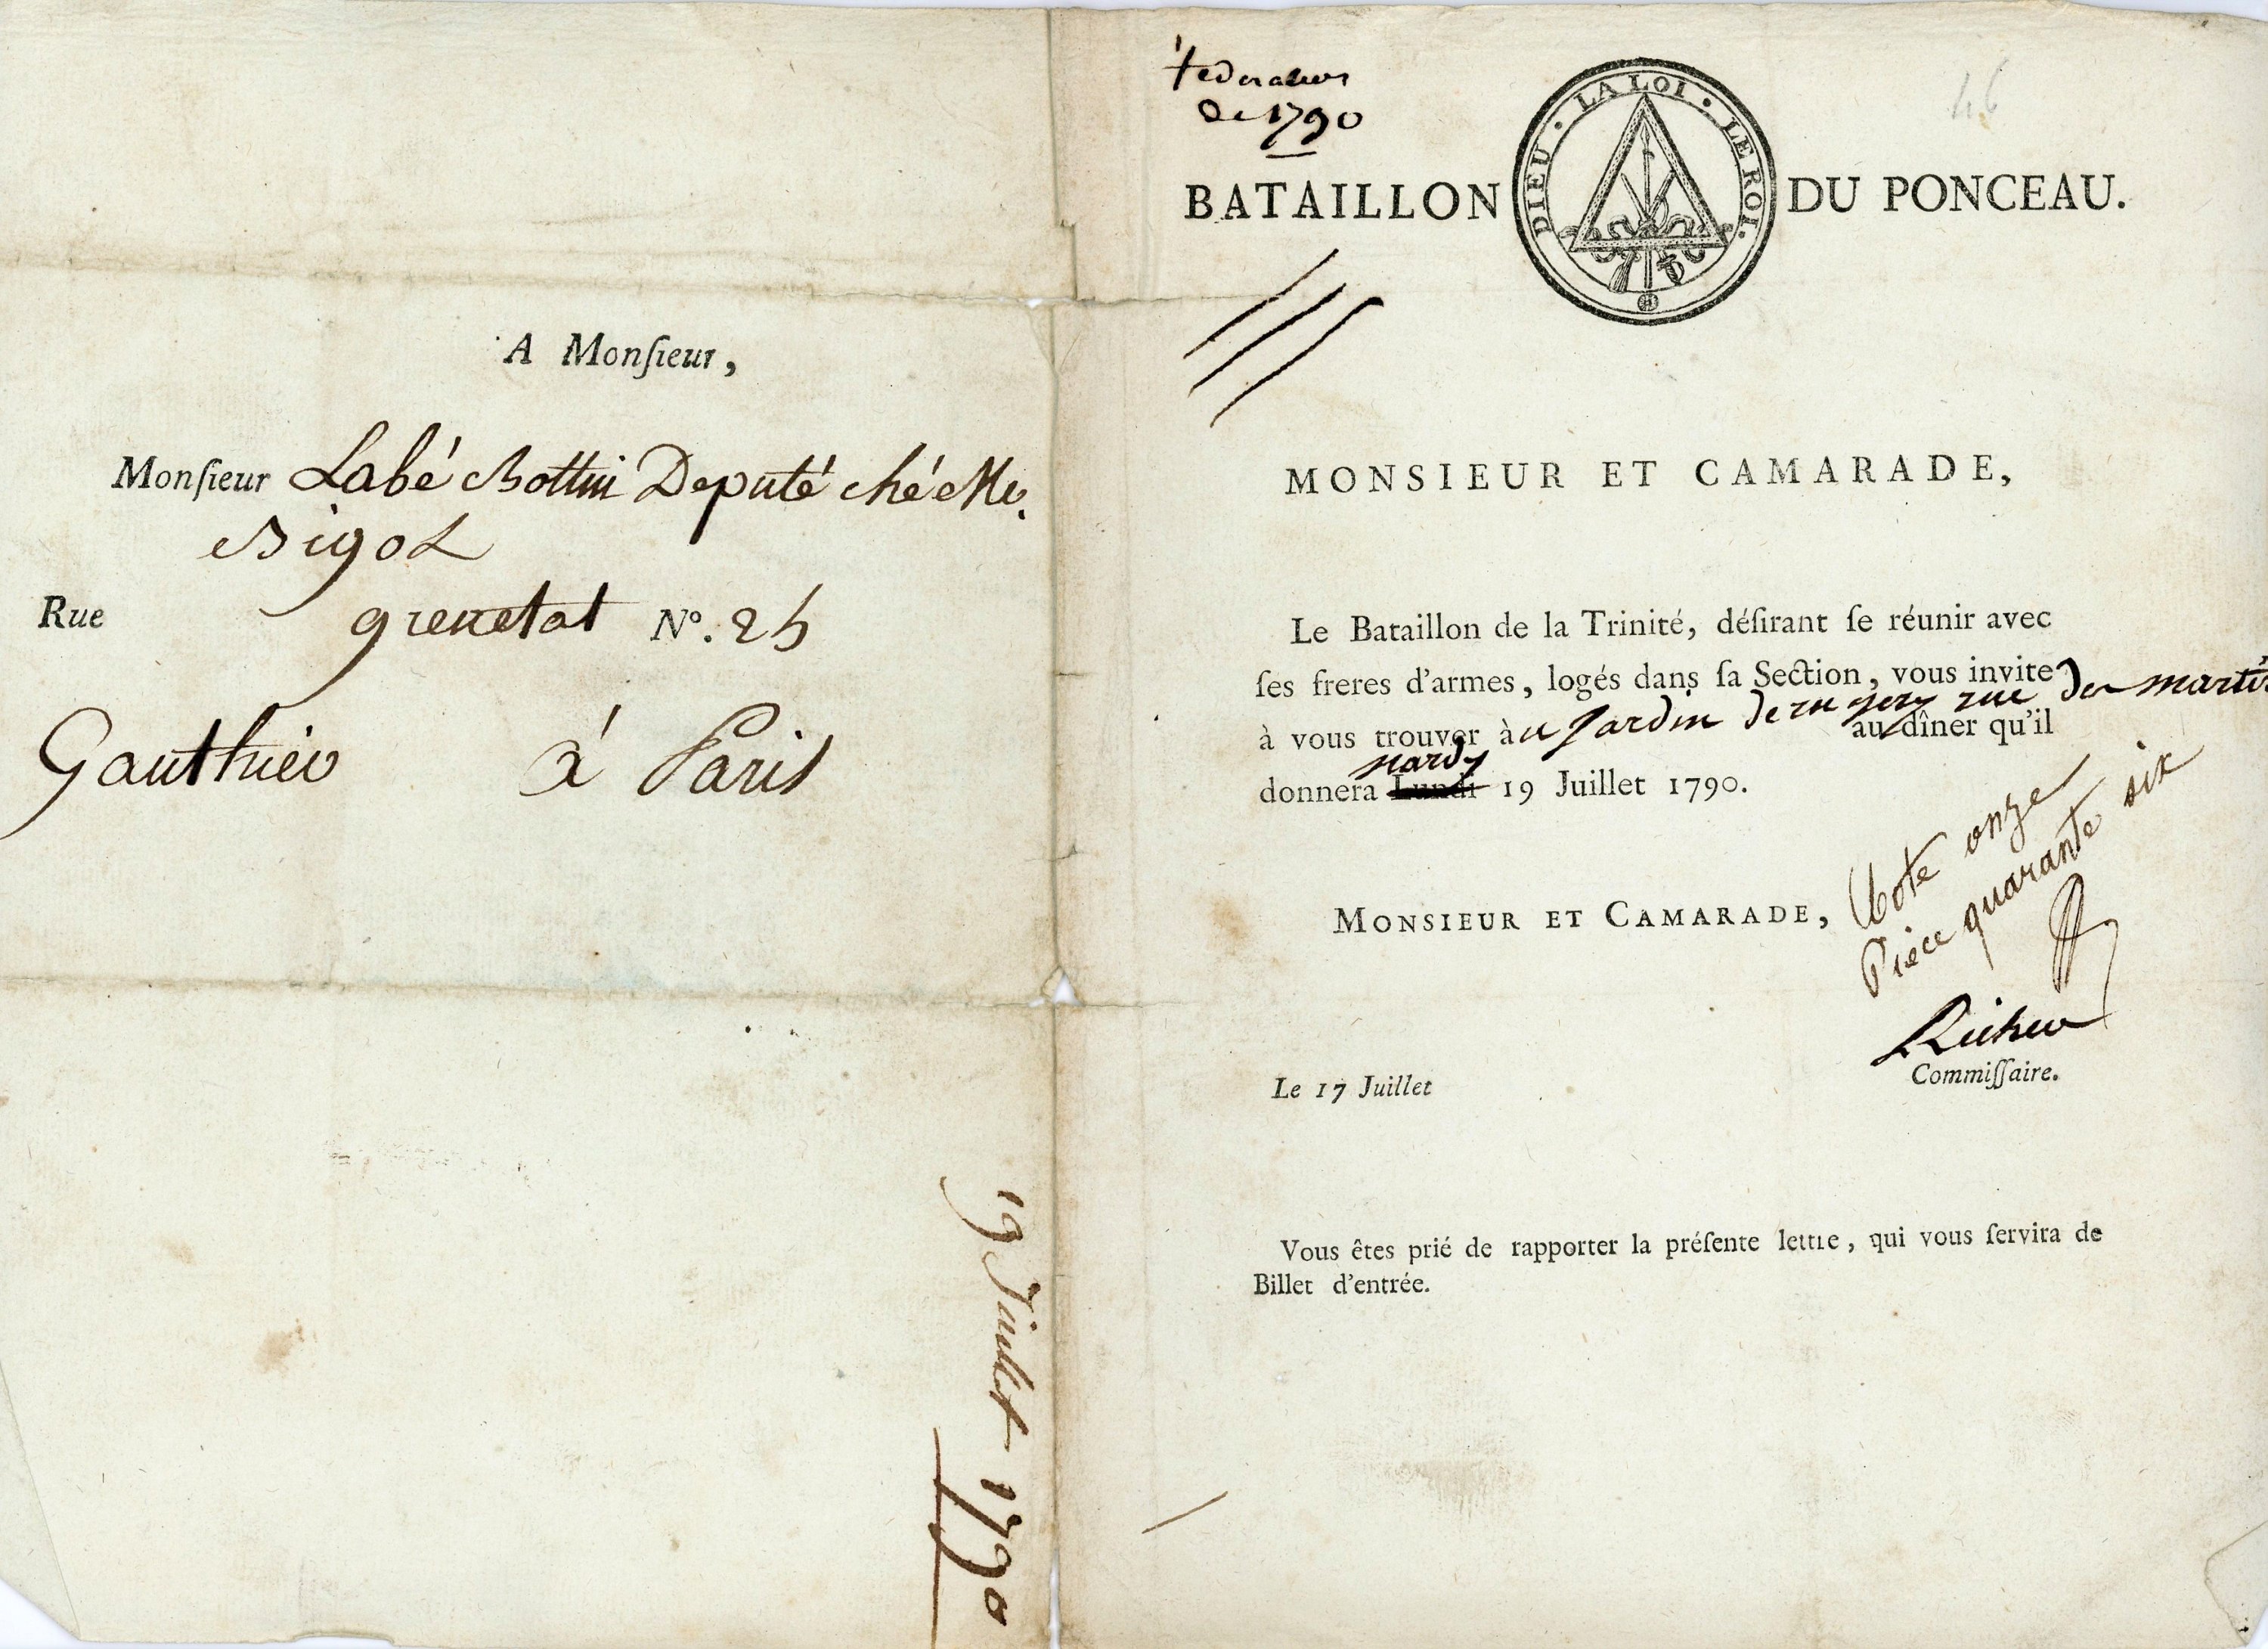 A Monſieur,
Monſieur Labé Bottin Deputé ché Mr.
Bigot
Rue grenetat N°. 25
Gauthier à Paris
19 Juillet 1790
federation
de 1790
46
BATAILLON DU PONCEAU.
DIEU · LA LOI · LE ROI.
MONSIEUR ET CAMARADE,
Le Bataillon de la Trinité, déſirant ſe réunir avec
ſes freres d'armes, logés dans ſa Section, vous invite
à vous trouver àu Jardin de rue des martirs au dîner qu'il
mardy
donnera Lundi 19 Juillet 1790.
MONSIEUR ET CAMARADE,
Cote onze
Piece quarante six
Commiſſaire.
Le 17 Juillet
Vous êtes prié de rapporter la préſente lettre, qui vous ſervira de
Billet d'entrée.